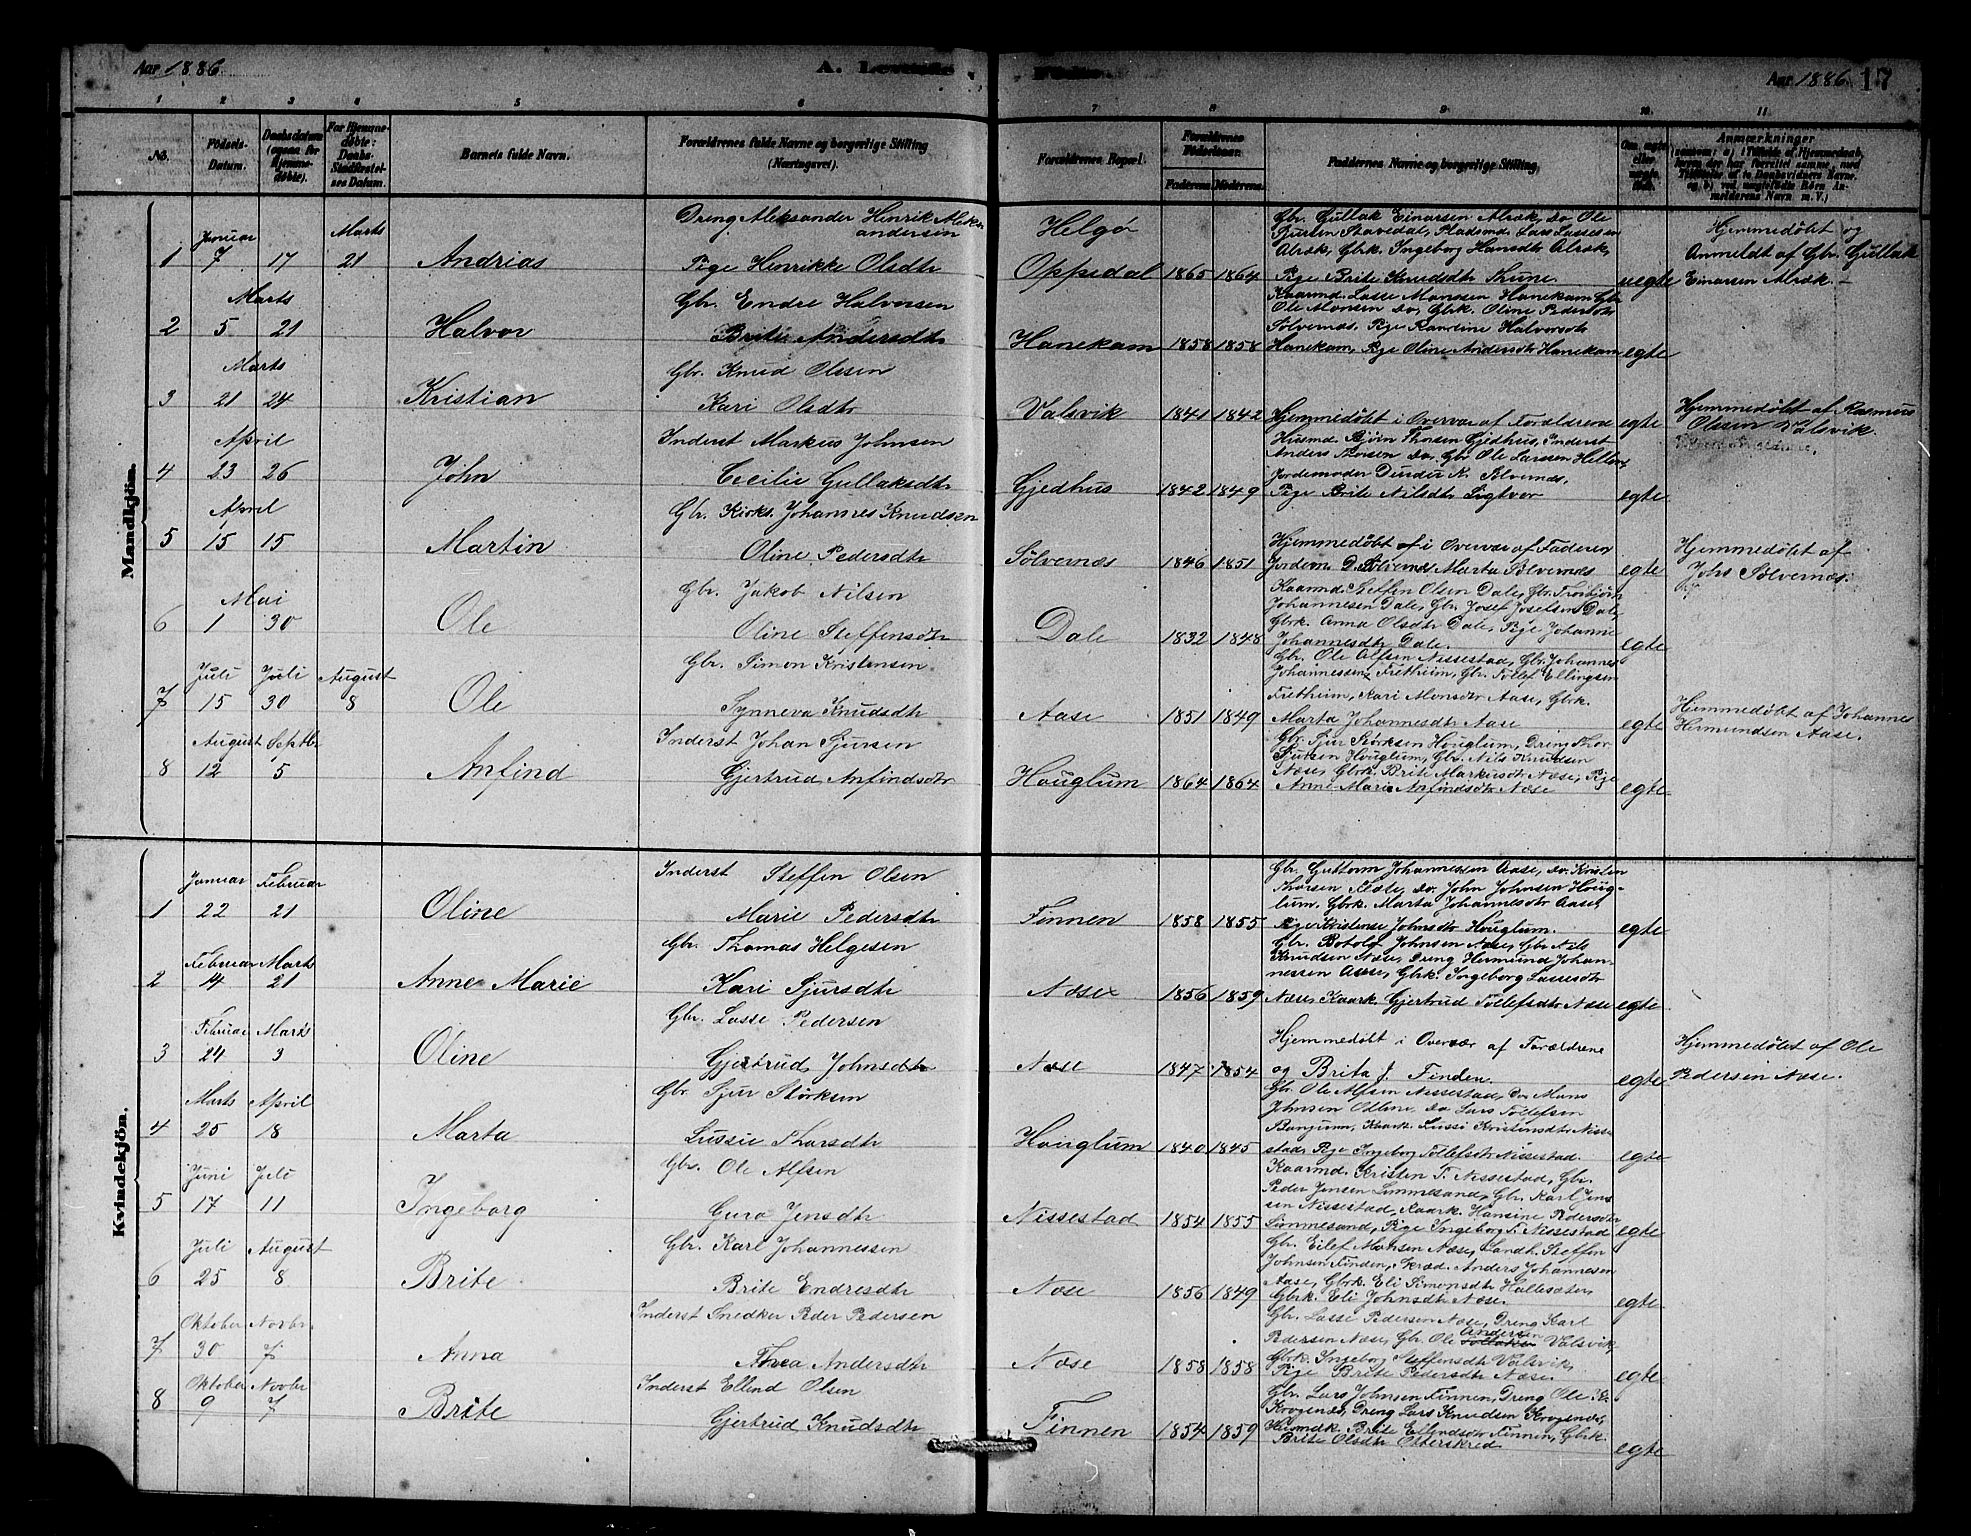 Aar 1886.
A. Levende
Fødte.
Aar 1886. 17
1 2 3 4 5 6 7 8 9 10 11
No.
Fødsels-Datum.
Daabsdatum (ogsaa for Hjemmedøbte).
For Hjemmedøbte: Daabs-Stadfæstelses Datum.
Barnets fulde Navn.
Forældrenes fulde Navne og borgerlige Stilling (Næringsvei).
Forældrenes Bopæl.
Forældrenes Fødselsaar.
Faderens. Moderens.
Faddernes Navne og borgerlige Stilling.
Om ægte eller uægte født.
Anmærkninger
Mandkjøn.
Januar Marts
1 7 17 21 Andrias
Dreng Aleksander Henrik Aleks-
andersen
Pige Henrikke Olsdtr
Helgö
Oppedal 1865 1864
Gbr. Gullak Einarsen Alræk, do Ole
Sjursen Stavedal, Pladsmd. Lars Lassesen
Alræk, Gbrk. Ingeborg Hansdtr Alræk,
Pige Brite Knudsdtr Thune
uegte
Hjemmedøbt og
Anmeldt af Gbr. Gullak
Einarsen Alræk.
Marts
2 5 21 Halvor
Gbr. Endre Halvorsen
Brite Andersdtr
Hanekam 1858 1858
Kaarmd. Lasse Monsen Hanekam Gbr
Ole Monsen do, Gbrk. Oline Pedersdtr
Sölvernæs, Pige Rantine Halvorsdtr
Hanekam, Pige Oline Andersdtr Hanekam
egte
Marts
3 21 24 Kristian
Gbr. Knud Olssen
Kari Olsdtr
Valsvik 1841 1842
Hjemmedøbt i Overvær af Forældrene
egte
Hjemmedøbt af Rasmus
Olssen Valsvik.
April
4 23 26 John
Inderst Markus Johnsen
Cecilie Gullaksdtr
Gjedhus 1842 1849
Husmd. Björn Thorsen Gjedhus, Inderst
Anders Thorsen do, Gbr Ole Larssen
Jordemoder N. Sölvernæs.
Pige Brite Nilsdtr Ligtvor
egte
April
5 15 15 Martin
Gbr. Kirks. Johannes Knudsen
Oline Pedersdtr
Sölvernæs 1846 1851
Hjemmedøbt i Overvær af Faderen
Jordem. D. Sölvernæs Marta Sölvernæs
egte
Hjemmedøbt af
Johs Sölvernæs.
Mai
6 1 30 Ole
Gbr. Jakob Nilsen
Oline Steffensdtr
Dale 1832 1848
Kaarmd. Steffen Olsen Dale, Gbr. Thorbjörn
Johannesen Dale, Gbr. Josef Josefsen Dale,
Gbrk. Anna Olsdtr Dale, Pige Johanne
Johannesdtr Dale.
egte
Juli Juli August
7 15 30 8 Ole
Gbr. Simon Kristensen
Synneva Knudsdtr
Aase 1851 1849
Gbr. Ole Alfsen Nissestad, Gbr. Johannes
Johannessen Fretheim, Gbr. Tollef Ellingsen
Fretheim, Kari Monsdtr Aase, Gbrk.
Marta Johannesdtr Aase
egte
Hjemmedøbt af Johannes
Hermundsen Aase.
August Septbr
8 12 5 Anfind
Inderst Johan Sjursen
Gjertrud Anfindsdtr
Houglum 1864 1864
Gbr. Sjur Störksen Houglum, Dreng Thor
Sjursen Houglum, Gbr. Nils Knudsen
Næse, Gbrk. Brite Markusdtr Næse, Pige
Anne Marie Anfindsdtr Næse
egte
Kvindekjøn.
Januar Februar
1 22 21 Oline
Inderst Steffen Olsen
Marie Pedersdtr
Finnen 1858 1855
Gbr. Guttorm Johannessen Aase, do. Kristen
Thorsen Flæte, do. John Johnsen Houg-
lum, Gbrk. Marta Johannesdtr Aase,
Pige Kristense Johnsdtr Houglum.
egte
Februar Marts
2 14 21 Anne Marie
Gbr. Thomas Helgesen
Kari Sjursdtr
Næse 1856 1859
Gbr. Botolf Johnsen Næse, Gbr Nils
Knudsen Næse, Dreng Hermund Johan-
nessen Aase, Gbrk. Ingeborg Lassesdtr
Næse, Kaark. Gjertrud Tollefsdtr Næse
egte
Februar Marts
3 24 3 Oline
Gbr. Lasse Pedersen
Gjertrud Johnsdtr
Næse 1847 1854
Hjemmedøbt i Overvær af Forældrene
og Brita J. Finden.
egte
Hjemmedøbt af Ole
Pedersen Næse.
Marts April
4 25 18 Marta
Gbr. Sjur Störksen
Lussie Thorsdtr
Houglum 1840 1845
Gbr. Ole Alfsen Nissestad, do Mons
Johnsen Ottene, do Lars Tollefsen
Bonjum, Kaark. Lussi Kristensdtr Nisse
stad, Pige Ingeborg Tollefsdtr Nissestad.
egte
Juni Juli
5 17 11 Ingeborg
Gbr. Ole Alfsen
Guro Jensdtr
Nissestad 1854 1855
Kaarmd. Kristen T. Nissestad, Gbr.
Peder Jensen Limmesand, Gbr. Karl Jens
sen Nissestad, Kaark. Hansine Pedersdtr
Limmesand, Pige Ingeborg T. Nissestad
egte
Juli August
6 25 8 Brite
Gbr. Karl Johannessen
Brite Endresdtr
Næse 1856 1849
Gbr. Eilef Monsen Næse, Landh. Steffen
Johnsen Finden, Skræd. Anders Johannesen
Aase, Gbrk. Eli Simonsdtr Hallesæter,
Gbrk. Eli Johnsdtr Næse.
egte
Oktober Novbr.
7 30 7 Anna
Inderst Snedker Peder Pedersen
Thea Andersdtr
Næse 1858 1858
Gbr. Lasse Pedersen Næse, Dreng Karl
Pedersen Næse, Gbr. Ole Andersen Valsvik,
Gbrk. Ingeborg Steffensdtr Valsvik,
Pige Brite Pedersdtr Næse.
egte
Oktober Novbr
8 9 7 Brite
Inderst Ellend Olsen
Gjertrud Knudsdtr
Finnen 1854 1859
Gbr. Lars Johnsen Finnen, Dreng Ole K.
Krogenæs, Dreng Lars Knudsen Krogenæs,
Husmdk. Brite Ellendsdtr Finnen, Gbrk.
Brite Olsdtr Otterskred
egte